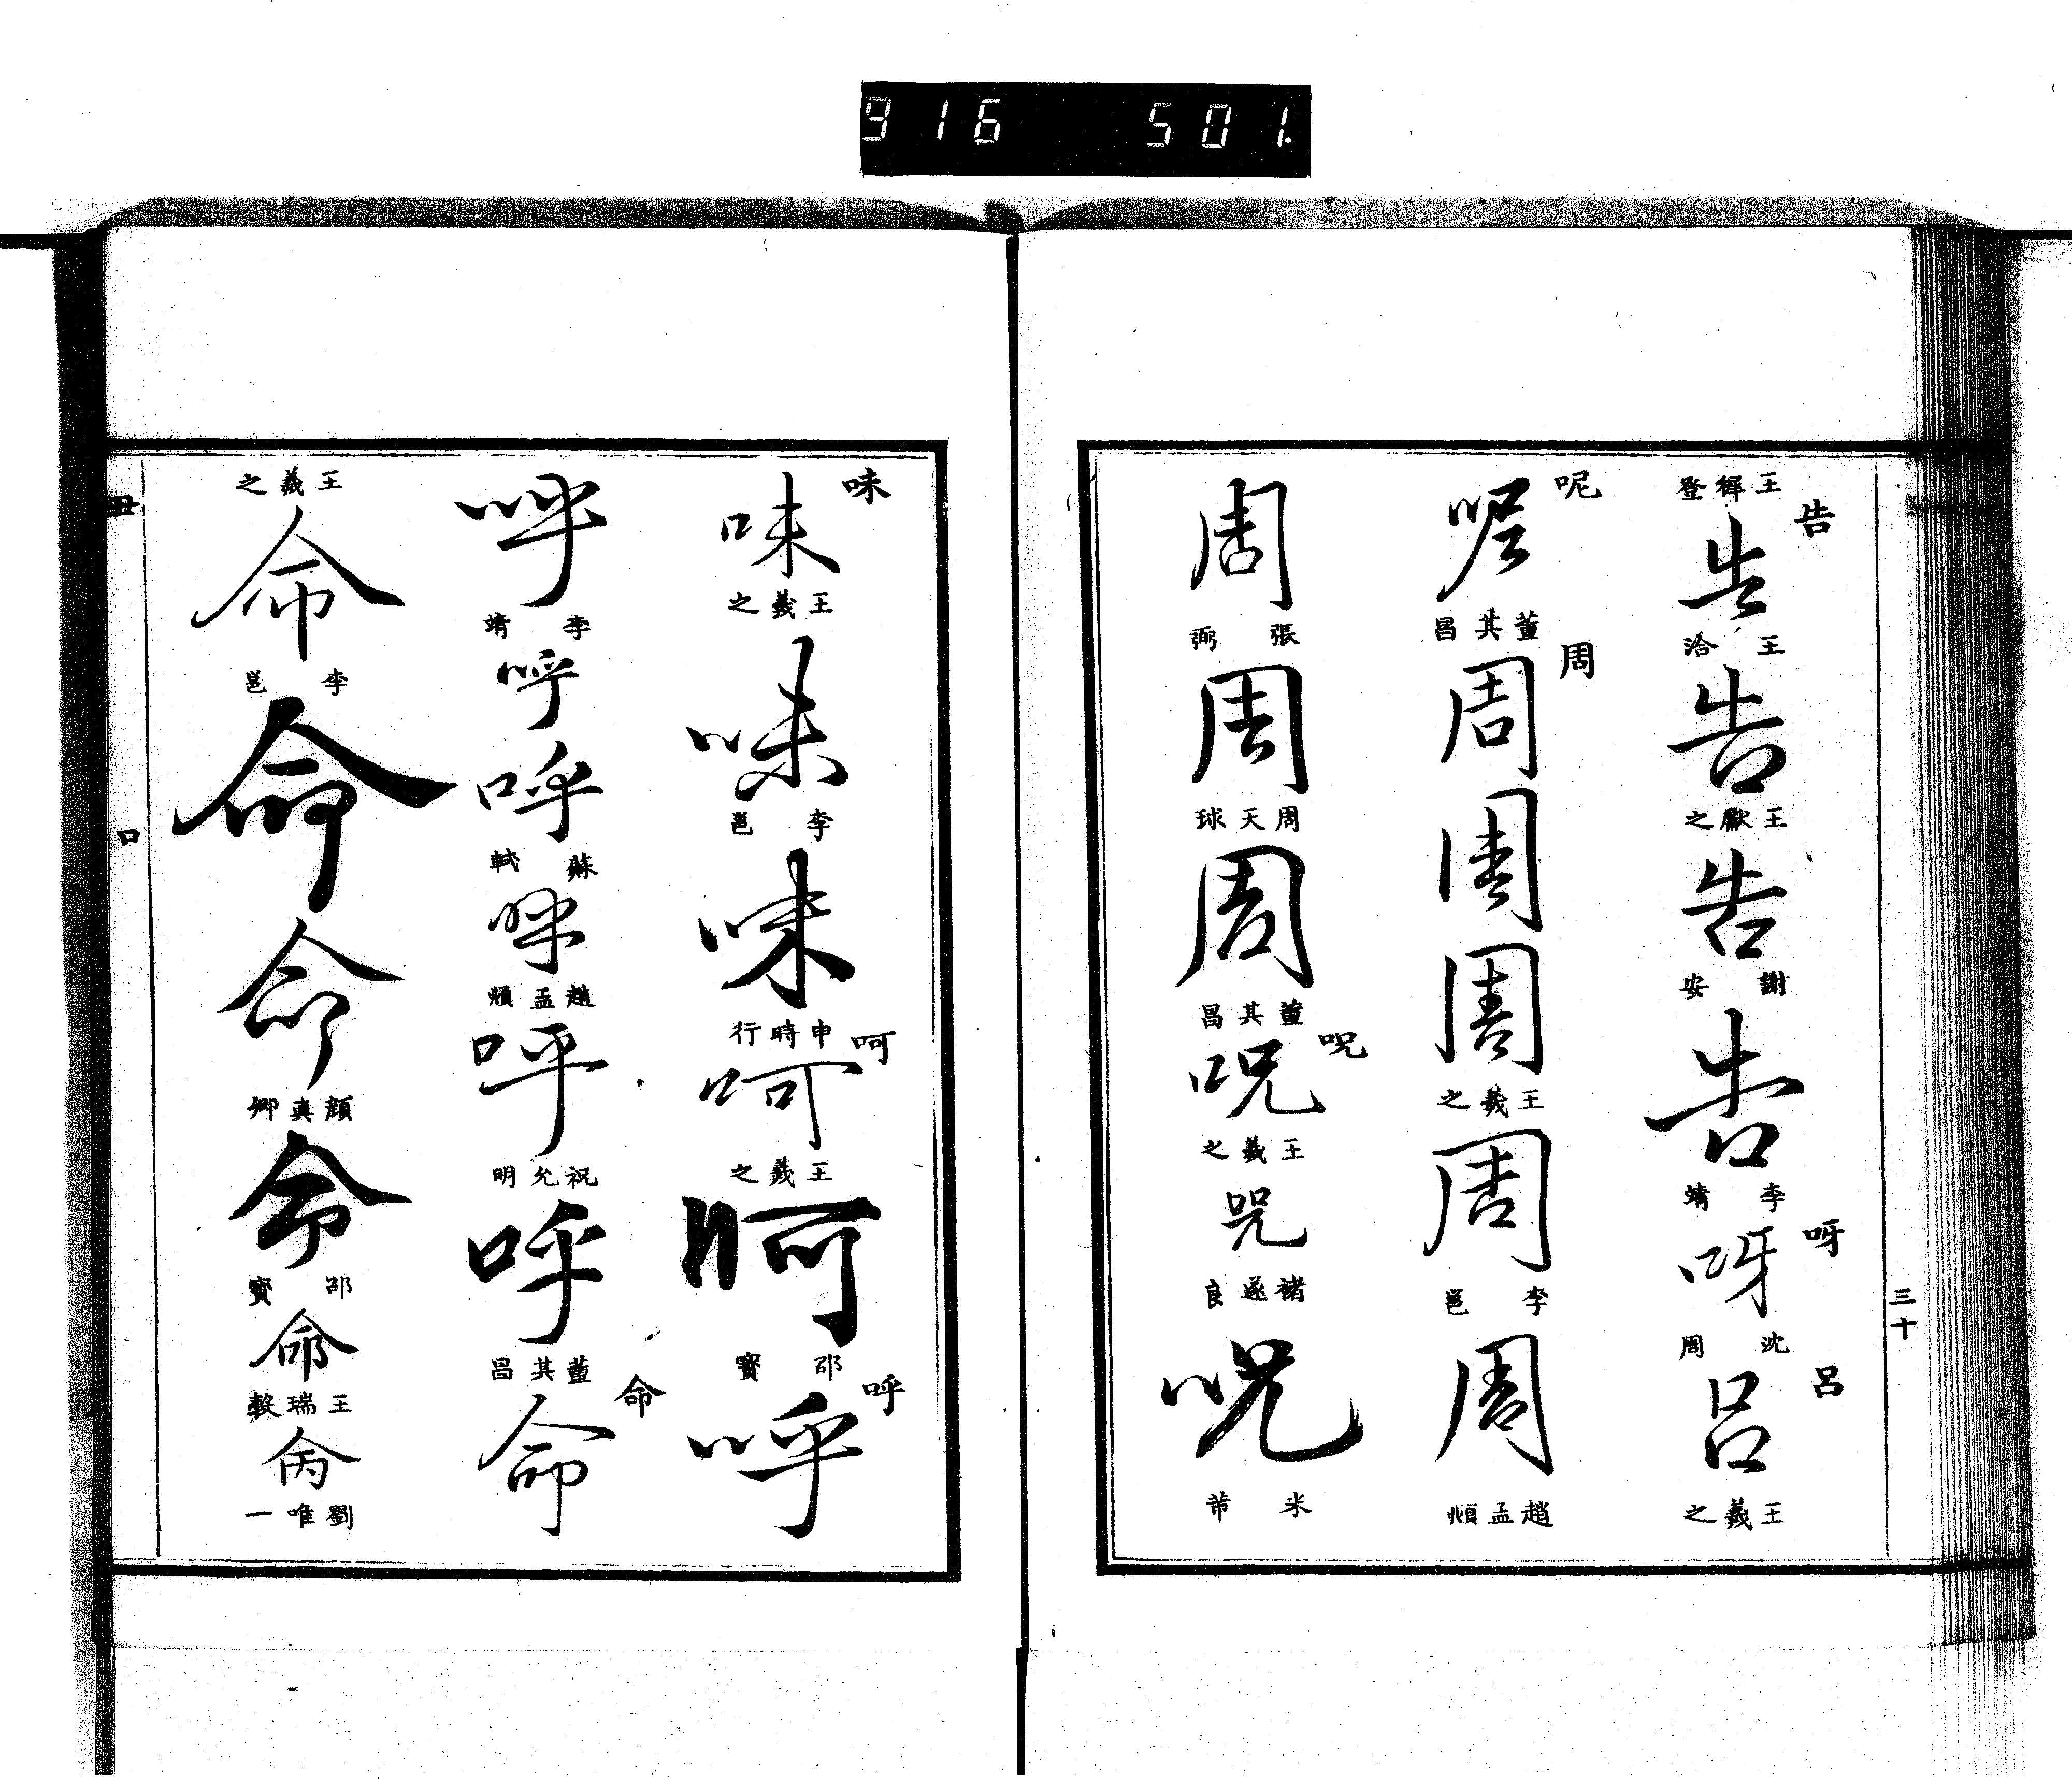 916 501.
三十
告
王穉登
告
王洽
告
王獻之
告
謝安
告
李靖
呀
呀
沈周
呂
呂
王羲之
呢
呢
董其昌
周
周
周
周
王羲之
周
李邕
周
趙孟頫
周
張弼
周
周天球
周
董其昌
呪
呪
王羲之
咒
褚遂良
呪
米芾
味
味
王羲之
味
李邕
味
申時行
呵
呵
王羲之
呵
邵寶
呼
呼
呼
李靖
呼
呼
蘇軾
呼
趙孟頫
呼
祝允明
呼
董其昌
命
命
王羲之
命
李邕
命
命
顏真卿
命
邵寶
命
王瑞穀
命
劉唯一
丑
口